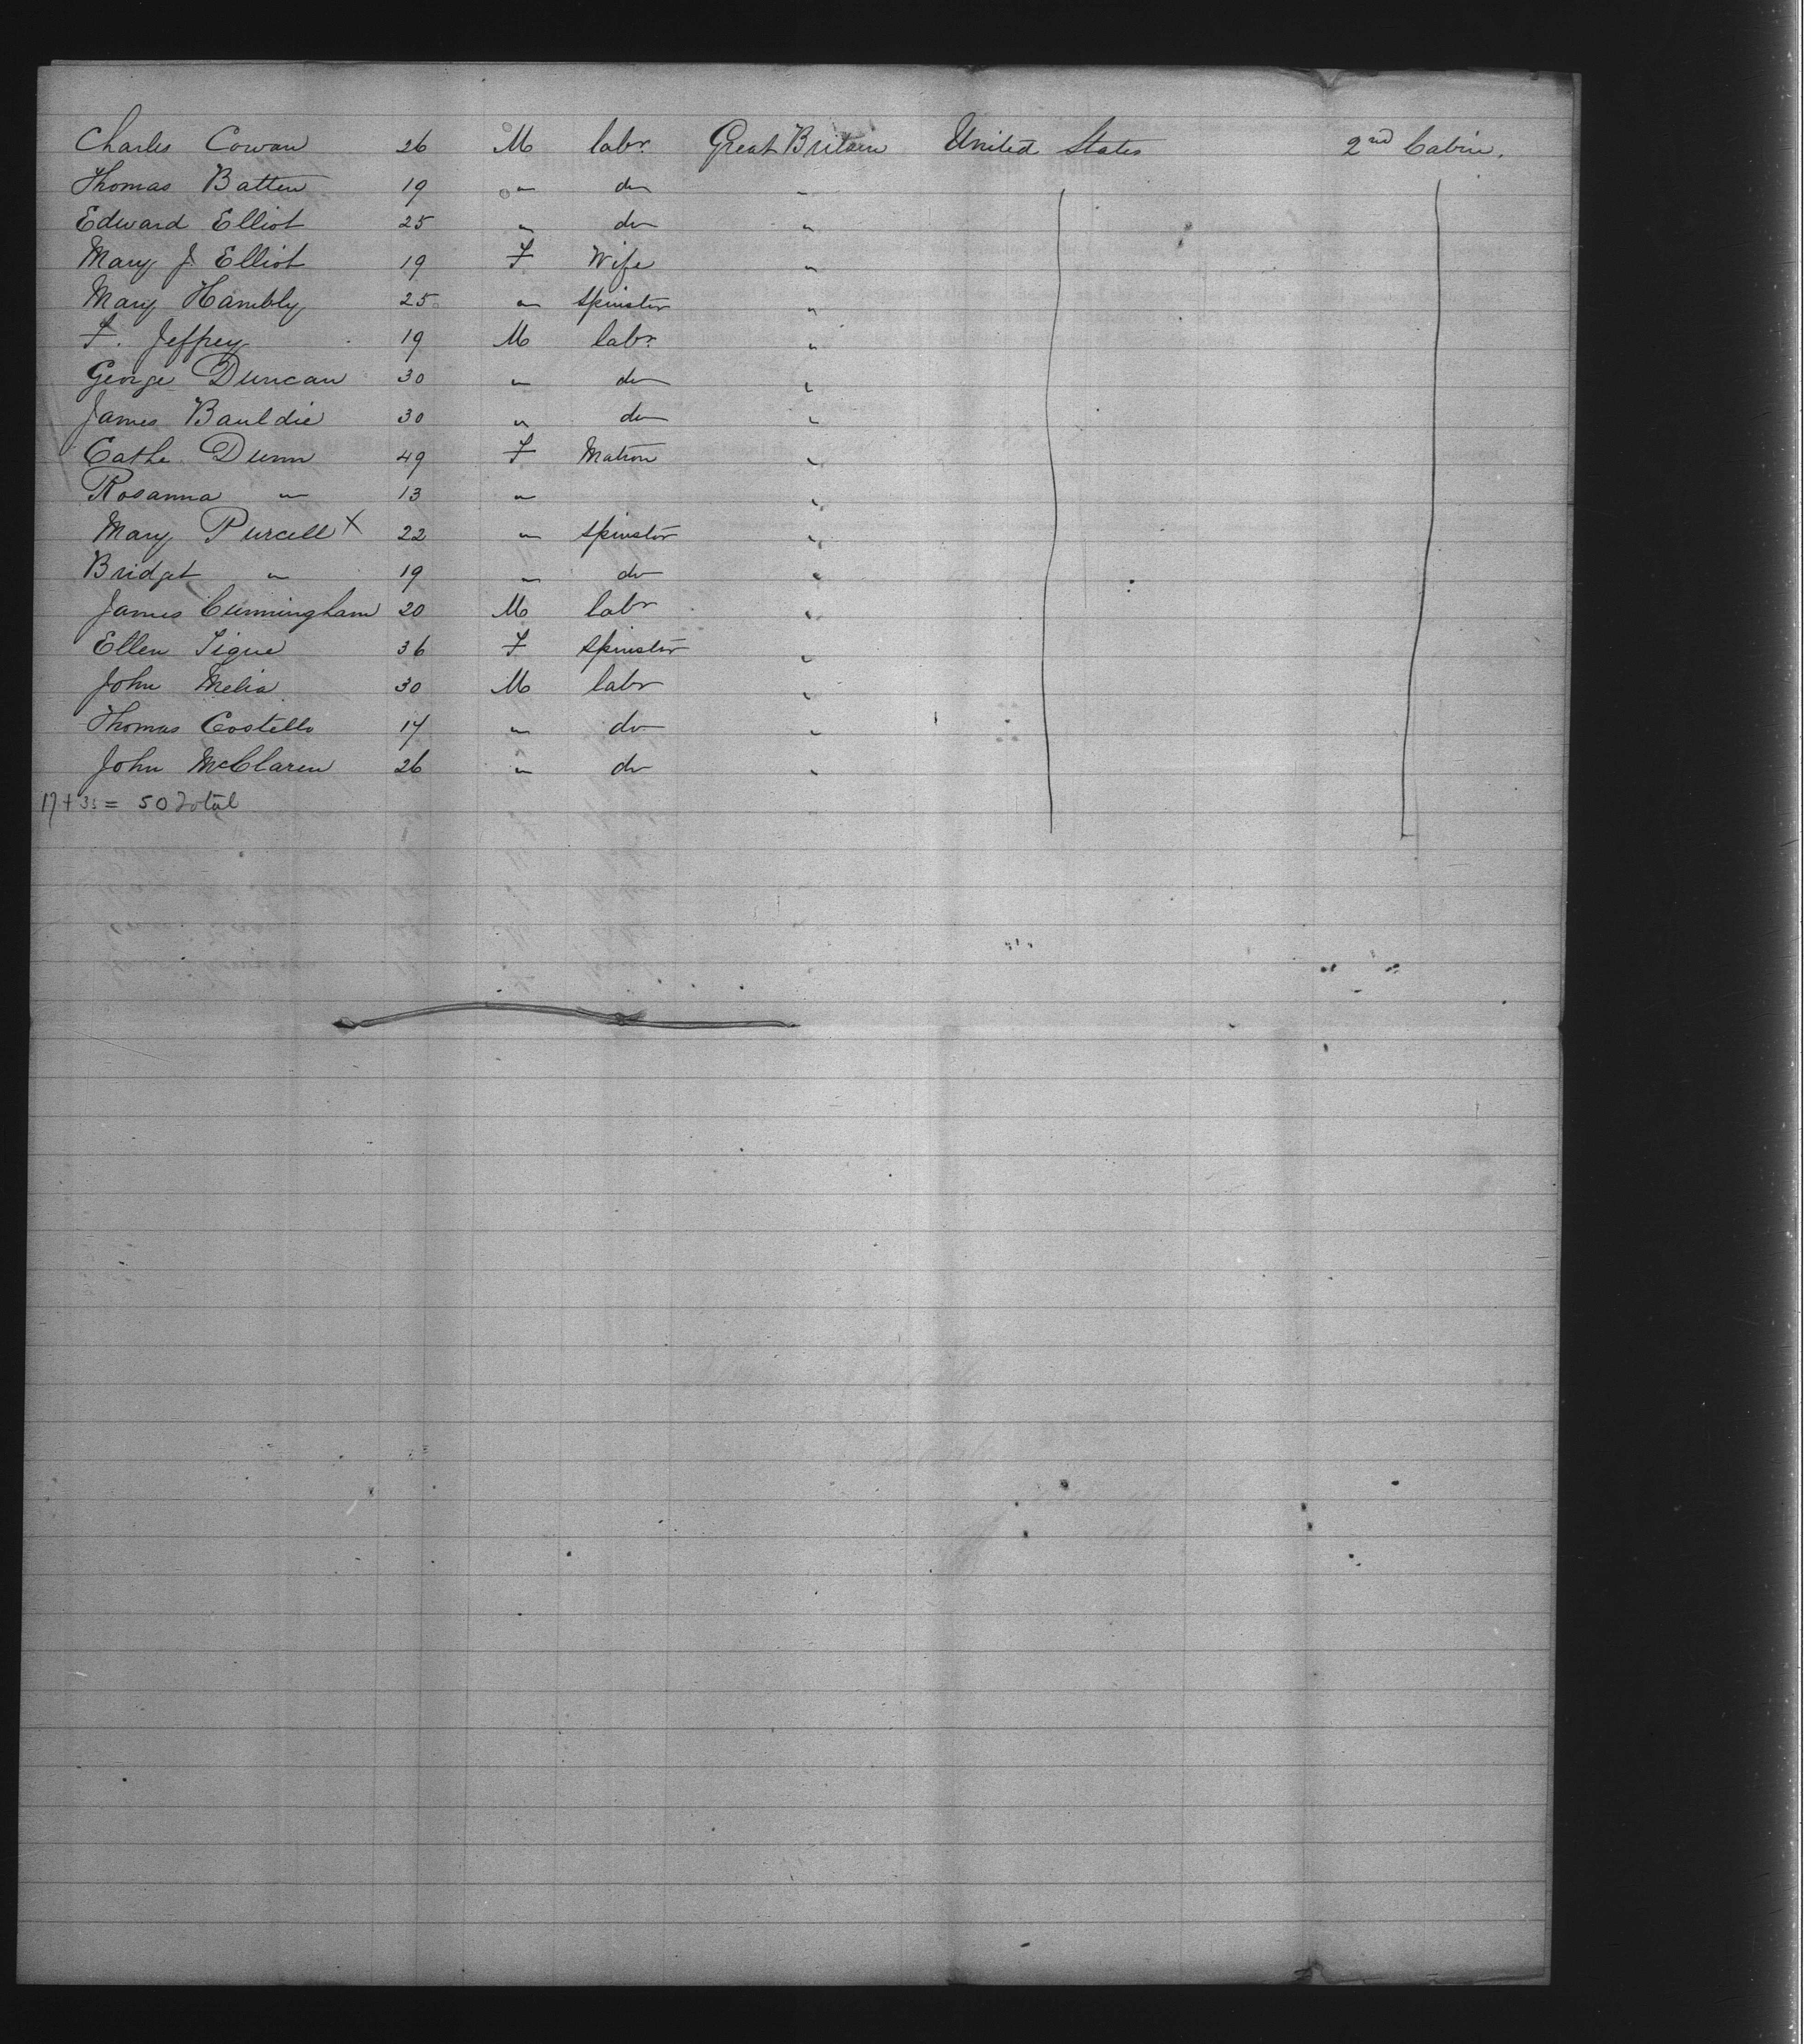 Charles Cowan 26 M labr. Great Britain United States 2nd Cabin.
Thomas Batten 19 " do "
Edward Elliot 25 " do "
Mary J. Elliot 19 F Wife "
Mary Hambly 25 " Spinster "
F. Jeffrey 19 M labr. "
George Duncan 30 " do "
James Bauldie 30 " do "
Cathe Dunn 49 F Matron "
Rosanna " 13 " "
Mary Purcell X 22 " Spinster "
Bridget " 19 " do "
James Cunningham 20 M labr "
Ellen Tigue 36 F Spinster "
John Melia 30 M labr "
Thomas Costello 17 " do "
John McClaren 26 " do "
17 + = 50 Total